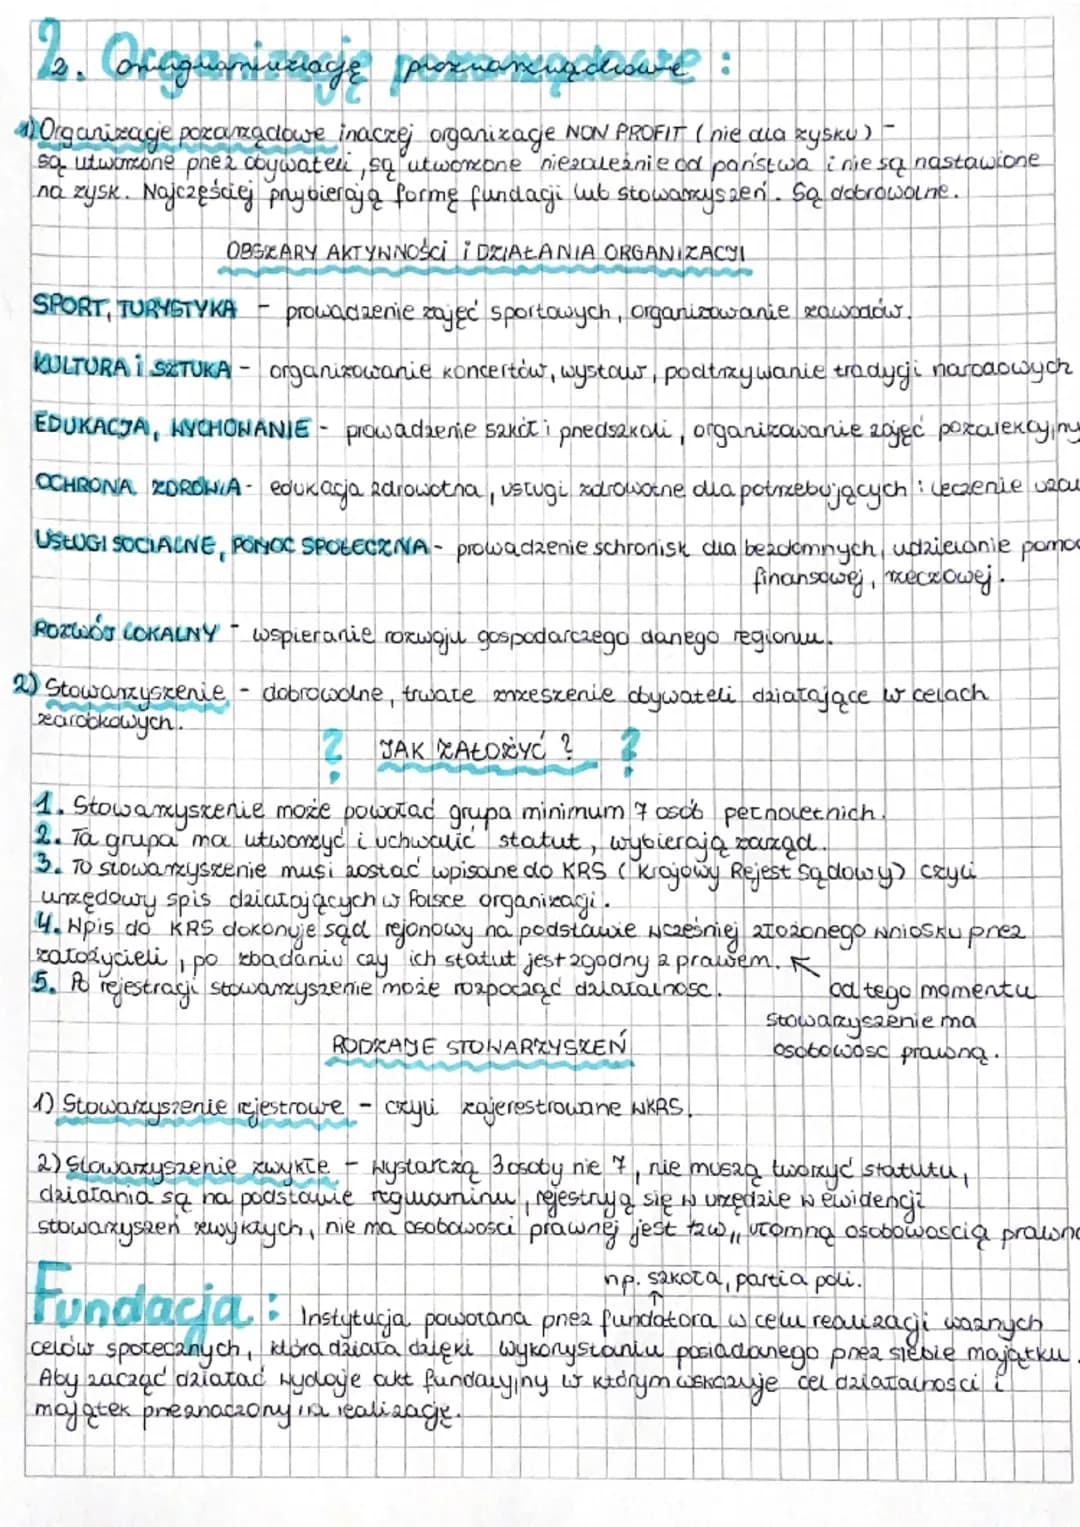 2. Organizacje pozarządowe :
1) Organizacje pozarządowe inaczej organizacje NON PROFIT (nie dla zysku) -
są utworzone przez obywateli, są utworzone niezależnie od państwa i nie są nastawione
na zysk. Najczęściej przybierają formę fundacji lub stowarzyszeń. Są dobrowolne.
OBSZARY AKTYWNOŚCI i DZIAŁANIA ORGANIZACJI
SPORT, TURYSTYKA - prowadzenie zajęć sportowych, organizowanie zawodów.
KULTURA i SZTUKA - organizowanie koncertów, wystaw, podtrzywanie tradycji narodowych
EDUKACJA, WYCHOWANIE - prowadzenie szkół i przedszkoli, organizowanie zajęć pozalekcyjny
OCHRONA ZDROWIA - edukacja zdrowotna, usługi zdrowotne dla potrzebujących : leczenie uzal
USŁUGI SOCIALNE, POMOC SPOŁECZNA - prowadzenie schronisk dla bezdomnych, udzielanie pomoc
finansowej, rzeczowej.
ROZWÓJ LOKALNY - wspieranie rozwoju gospodarczego danego regionu.
2) Stowarzyszenie - dobrowolne, trwałe zrzeszenie obywateli działające w celach
zarobkowych.
? JAK ZAŁOŻYĆ ? ?
1. Stowarzyszenie może powołać grupa minimum 7 osób pełnoletnich.
2. Ta grupa ma utworzyć i uchwalić statut, wybierają zarząd.
3. To stowarzyszenie musi zostać wpisane do KRS (Krajowy Rejest Sądowy) czyli
urzędowy spis działających w Polsce organizacji.
4. Wpis do KRS dokonuje sąd rejonowy na podstawie wcześniej złożonego wniosku przez
założycieli, po zbadaniu czy ich statut jest zgodny z prawem. ↖
5. Po rejestracji stowarzyszenie może rozpocząć działalność. od tego momentu
stowarzyszenie ma
osobowość prawną.
RODZAJE STOWARZYSZEŃ
1) Stowarzyszenie rejestrowe - czyli zajerestrowane w KRS.
2) Stowarzyszenie zwykłe - wystarczą 3 osoby nie 7, nie muszą tworzyć statutu,
działania są na podstawie regulaminu, rejestrują się w urzędzie w ewidencji
stowarzyszeń zwykłych, nie ma osobowości prawnej jest tzw „ułomną osobowością prawną
np. szkoła, partia poli.
Fundacja : Instytucja powołana przez fundatora w celu realizacji ważnych
celów społecznych, która działa dzięki wykorzystaniu posiadanego przez siebie majątku.
Aby zacząć działać wydaje akt fundacyjny w którym wskazuje cel działalności i
majątek przeznaczony na realizację.